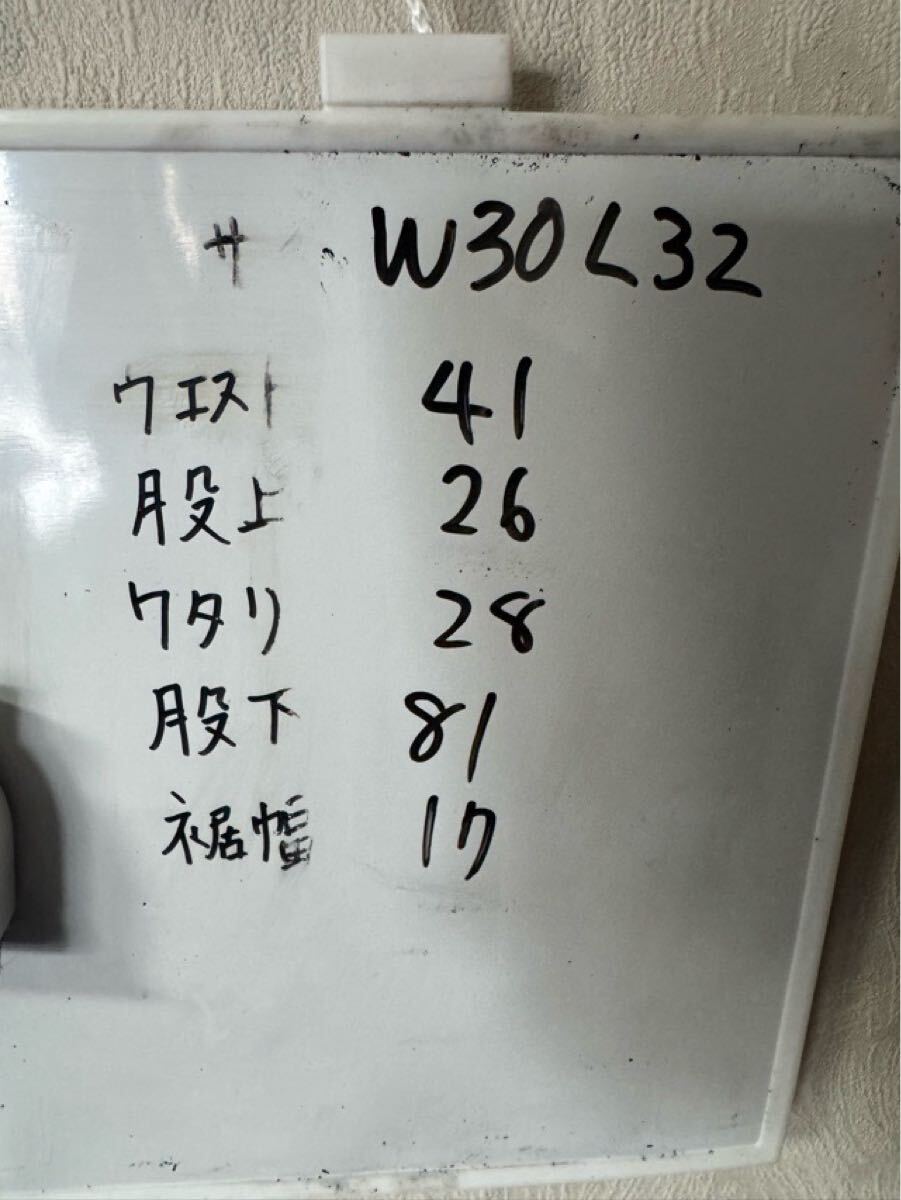 サ W30 L32
ウエスト 41
股上 26
ワタリ 28
股下 81
裾幅 17